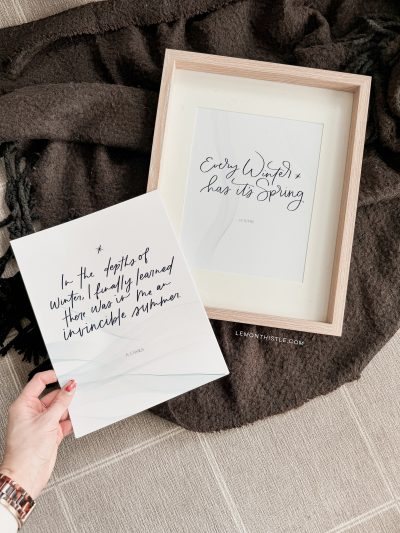 Every Winter
has its Spring
In the depths of
winter, I finally learned
there was in me an
invincible summer
LEMONTHISTLE.COM